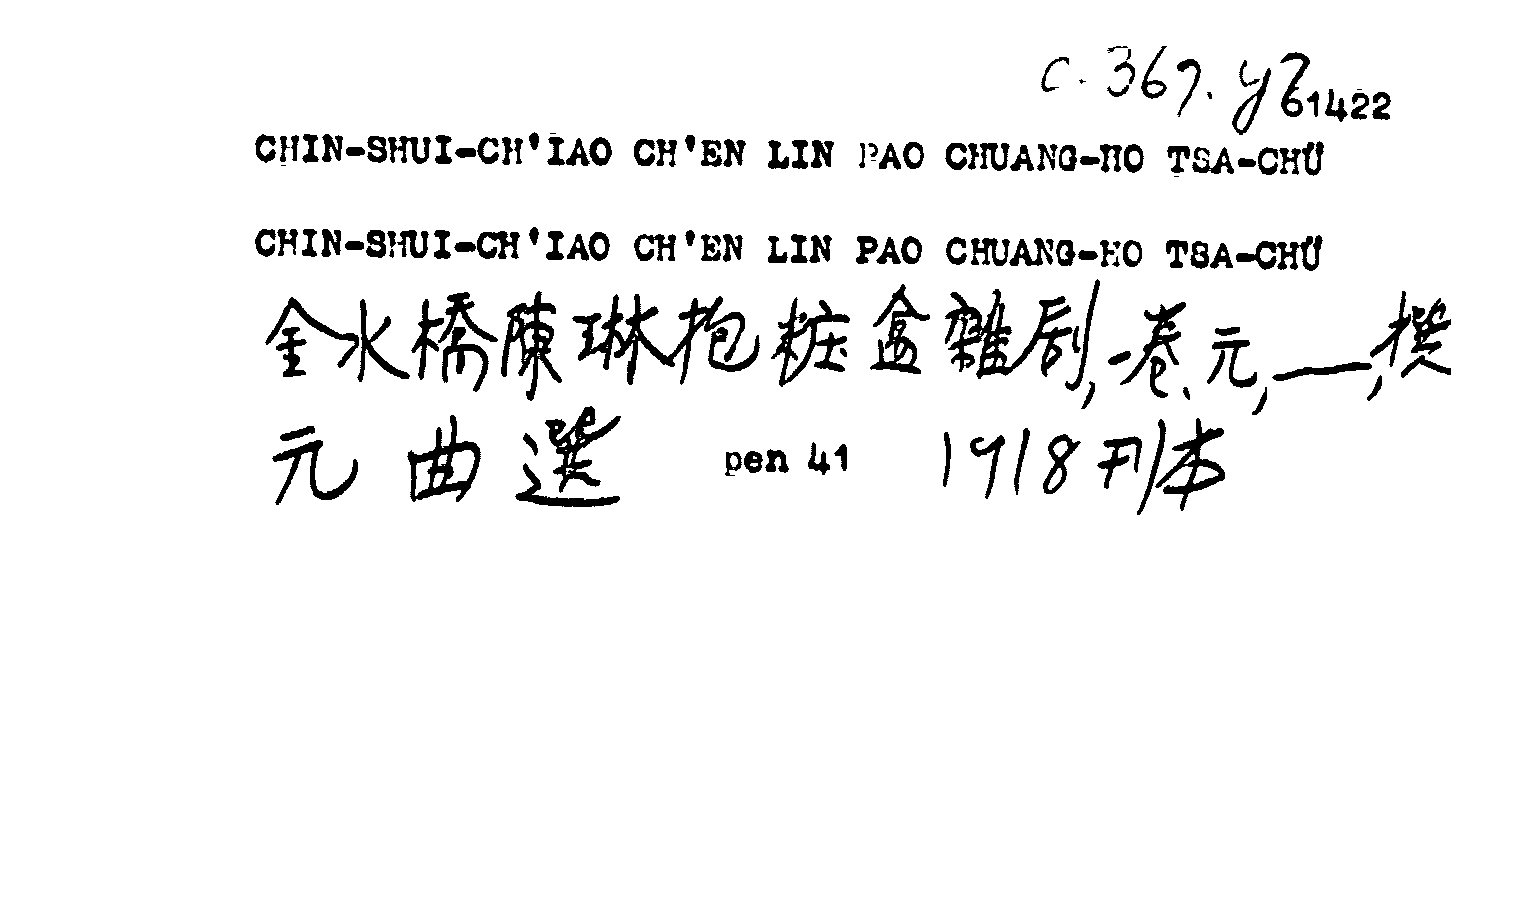 C. 367. y7
61422
CHIN-SHUI-CH'IAO CH'EN LIN PAO CHUANG-HO TSA-CHÜ
CHIN-SHUI-CH'IAO CH'EN LIN PAO CHUANG-HO TSA-CHÜ
金水橋陳琳抱粧盒雜劇,一卷、元,——,撰
元曲選 pen 41 1918刊本